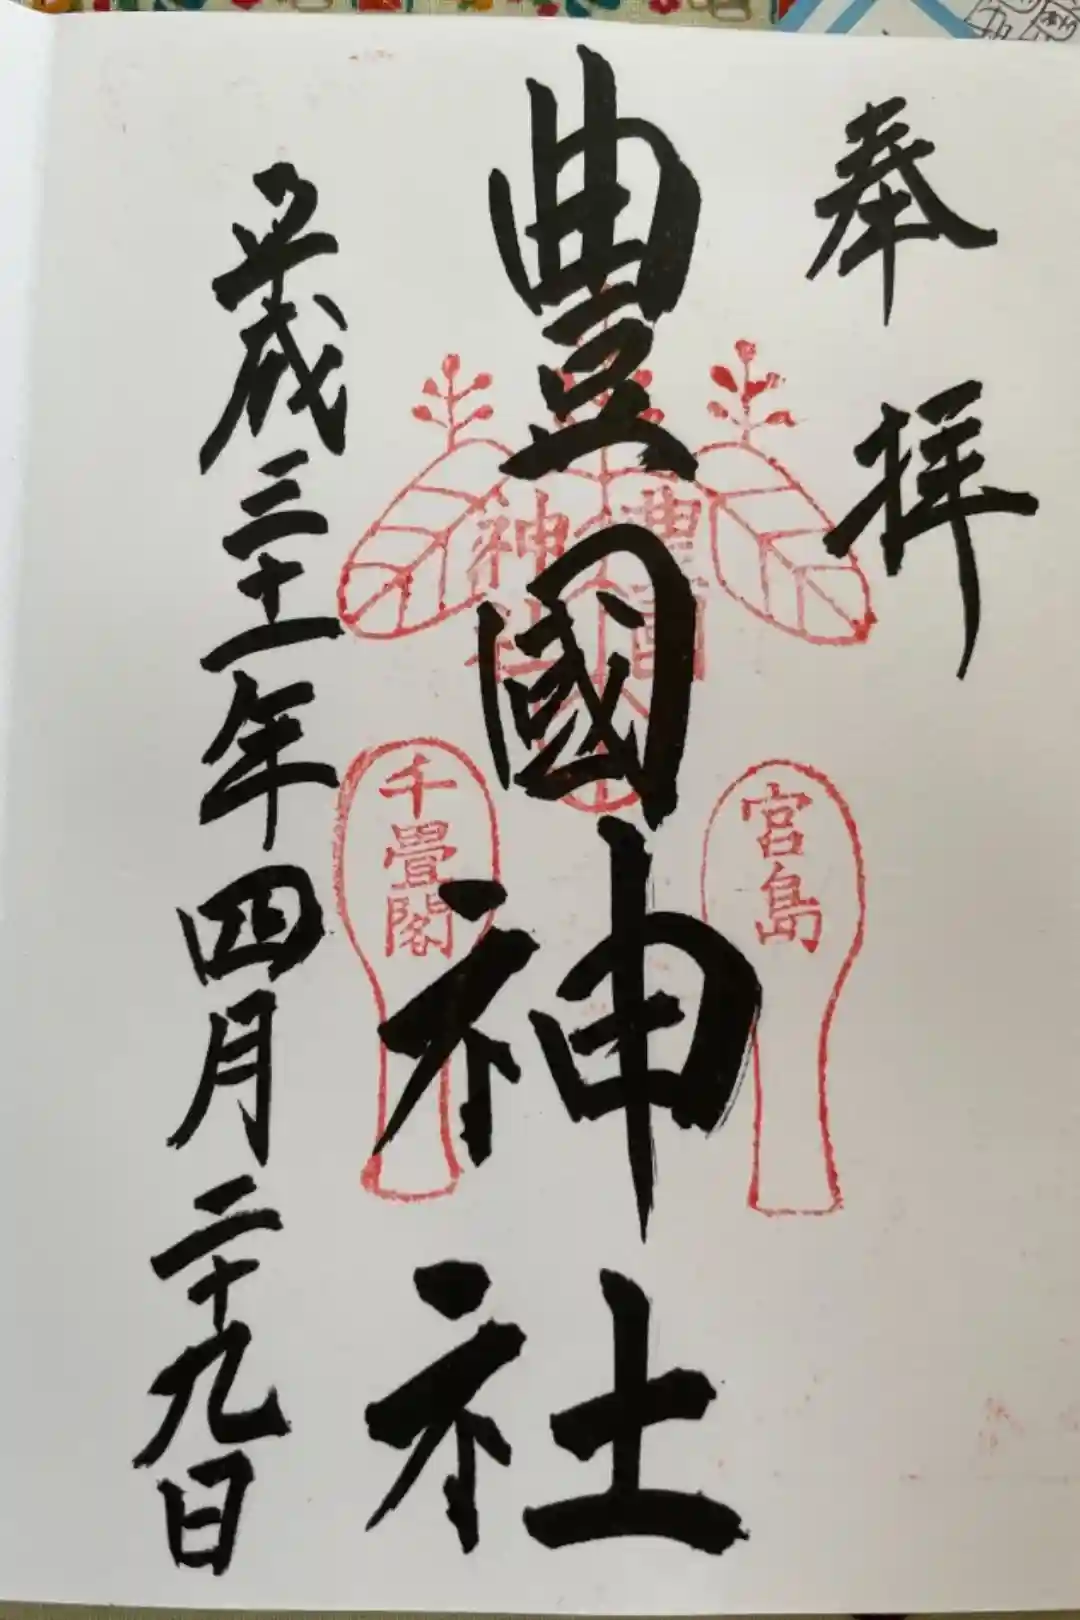 奉拝
豊國神社
豊國
神社
宮島
千畳閣
平成三十一年四月二十九日